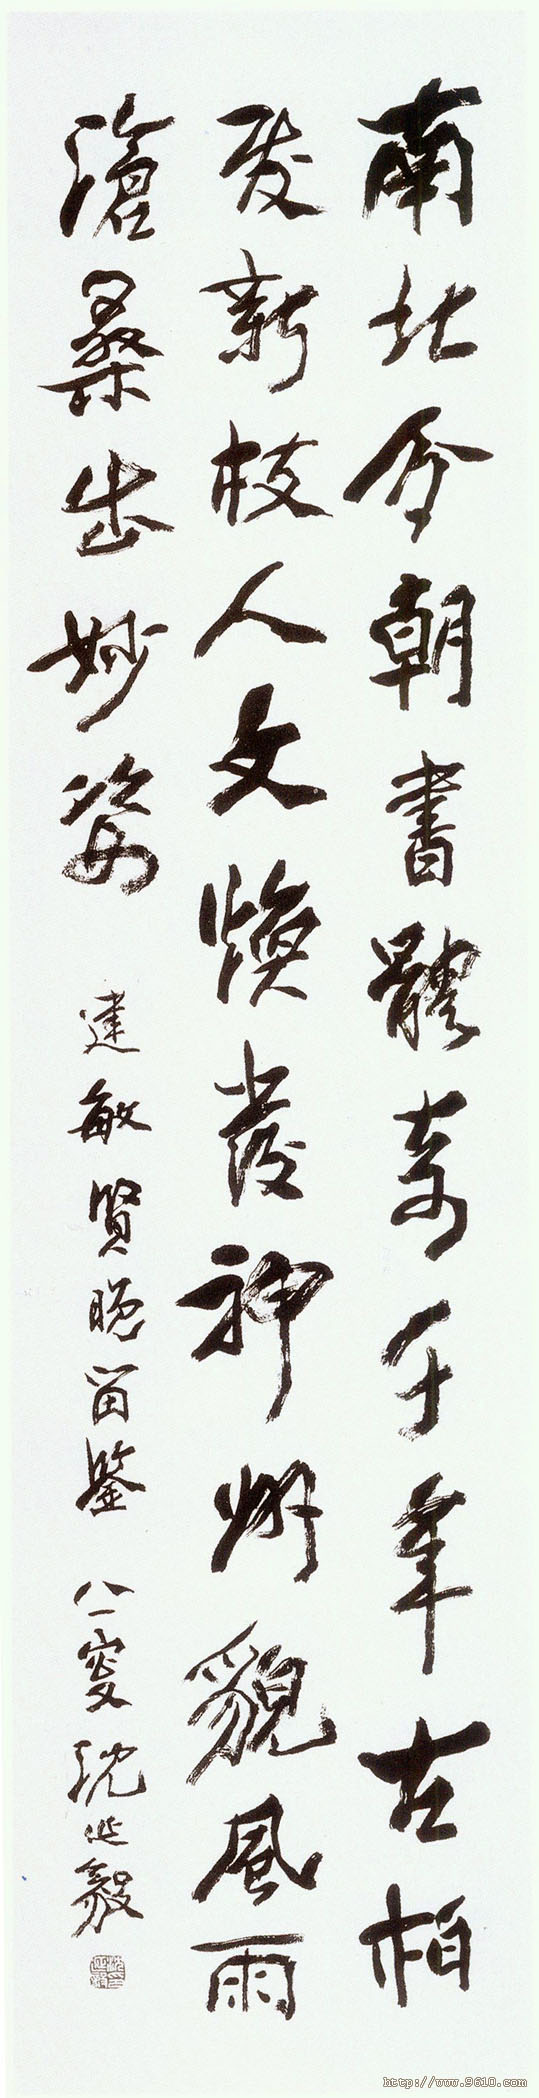 南北今朝書體奇千年古柏
發新枝人文煥發神州貌風雨
滄桑出妙姿
建敏賢晚留鑒 八一叟沈延毅
http://www.9610.com